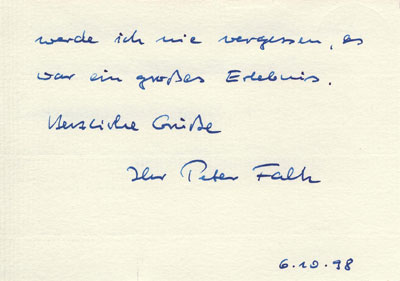 werde ich nie vergessen, es
war ein großes Erlebnis.
Herzliche Grüße
Ihr Peter Falk
6.10.98